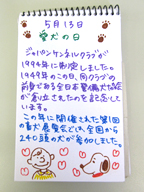 5月13日
愛犬の日
ジャパンケンネルクラブが
1994年に制定しました。
1949年のこの日、同クラブの
前身である全日本警備犬協会
が創立されたのを記念して
います。
この年に開催された第1回
の畜犬展覧会には、全国から
240頭の犬が参加しました。